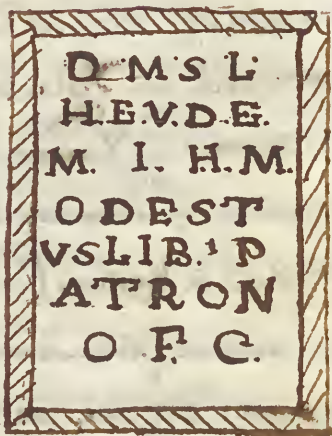 D M S L
H.E.V.D.E.
M. I. H.M.
ODEST
VSLIB. P
ATRON
O F. C.